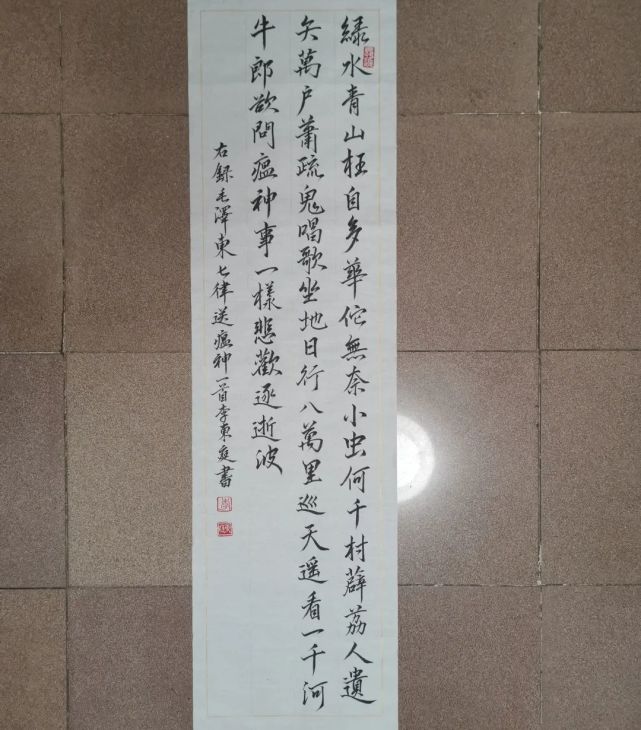 緑水青山枉自多華佗無奈小虫何千村薜荔人遺
矢萬户蕭疏鬼唱歌坐地日行八萬里巡天遥看一千河
牛郎欲問瘟神事一樣悲歡逐逝波
右録毛澤東七律送瘟神一首李東庭書